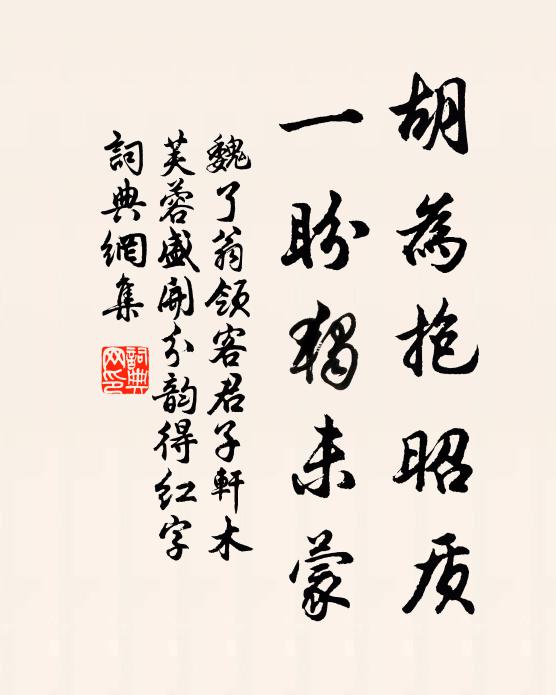 胡為抱昭质
一盼獨未蒙
魏了翁領客君子軒木
芙蓉盛開分韵得红字
詞典網集
詞典網印